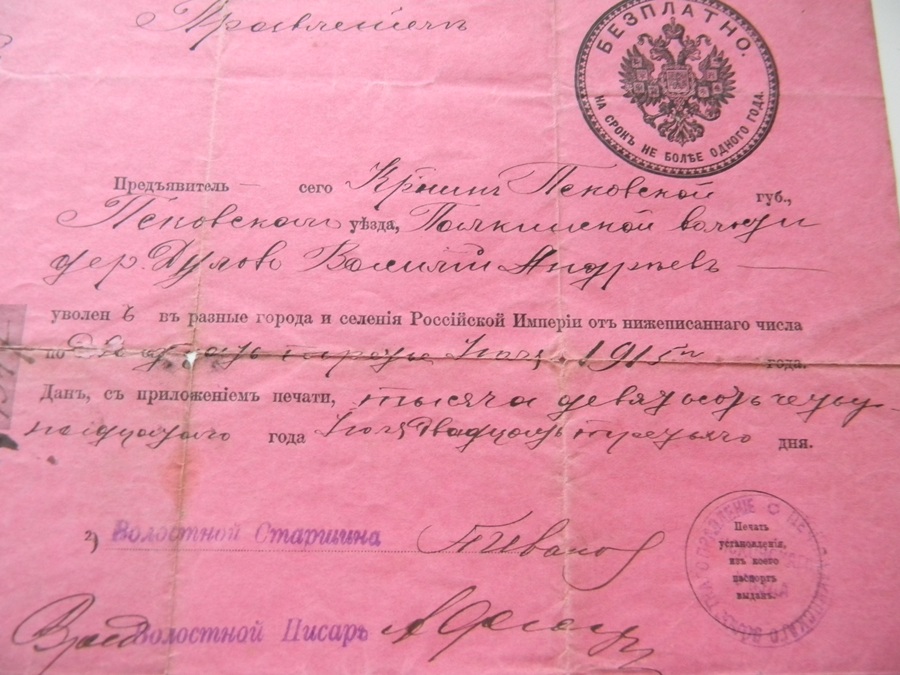 Правленіемъ
БЕЗПЛАТНО.
НА СРОКЪ НЕ БОЛѢЕ ОДНОГО ГОДА.
Предъявитель сего Псковской губ.,
Псковскаго уѣзда, волости
дер. Василій Андреевъ
уволенъ въ разные города и селенія Россійской Имперіи отъ нижеписаннаго числа
по Двадцать третье Іюля 1915 г. года.
Данъ, съ приложеніемъ печати, тысяча девятьсотъ четыр-
надцатаго года Іюля Двадцать третьяго дня.
2) Волостной Старшина П Иванов
Печать
установленія,
изъ коего
паспортъ
выданъ.
Волостной Писарь